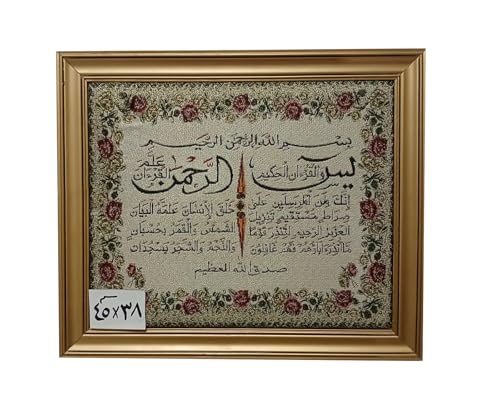 بسم الله الرحمن الرحيم
يس والقرءان الحكيم
إنك لمن المرسلين على
صراط مستقيم تنزيل
العزيز الرحيم لتنذر قوما
ما أنذر آباؤهم فهم غافلون
الرحمن علم القرءان
خلق الإنسان علمه البيان
الشمس والقمر بحسبان
والنجم والشجر يسجدان
صدق الله العظيم
٤٥x٣٨